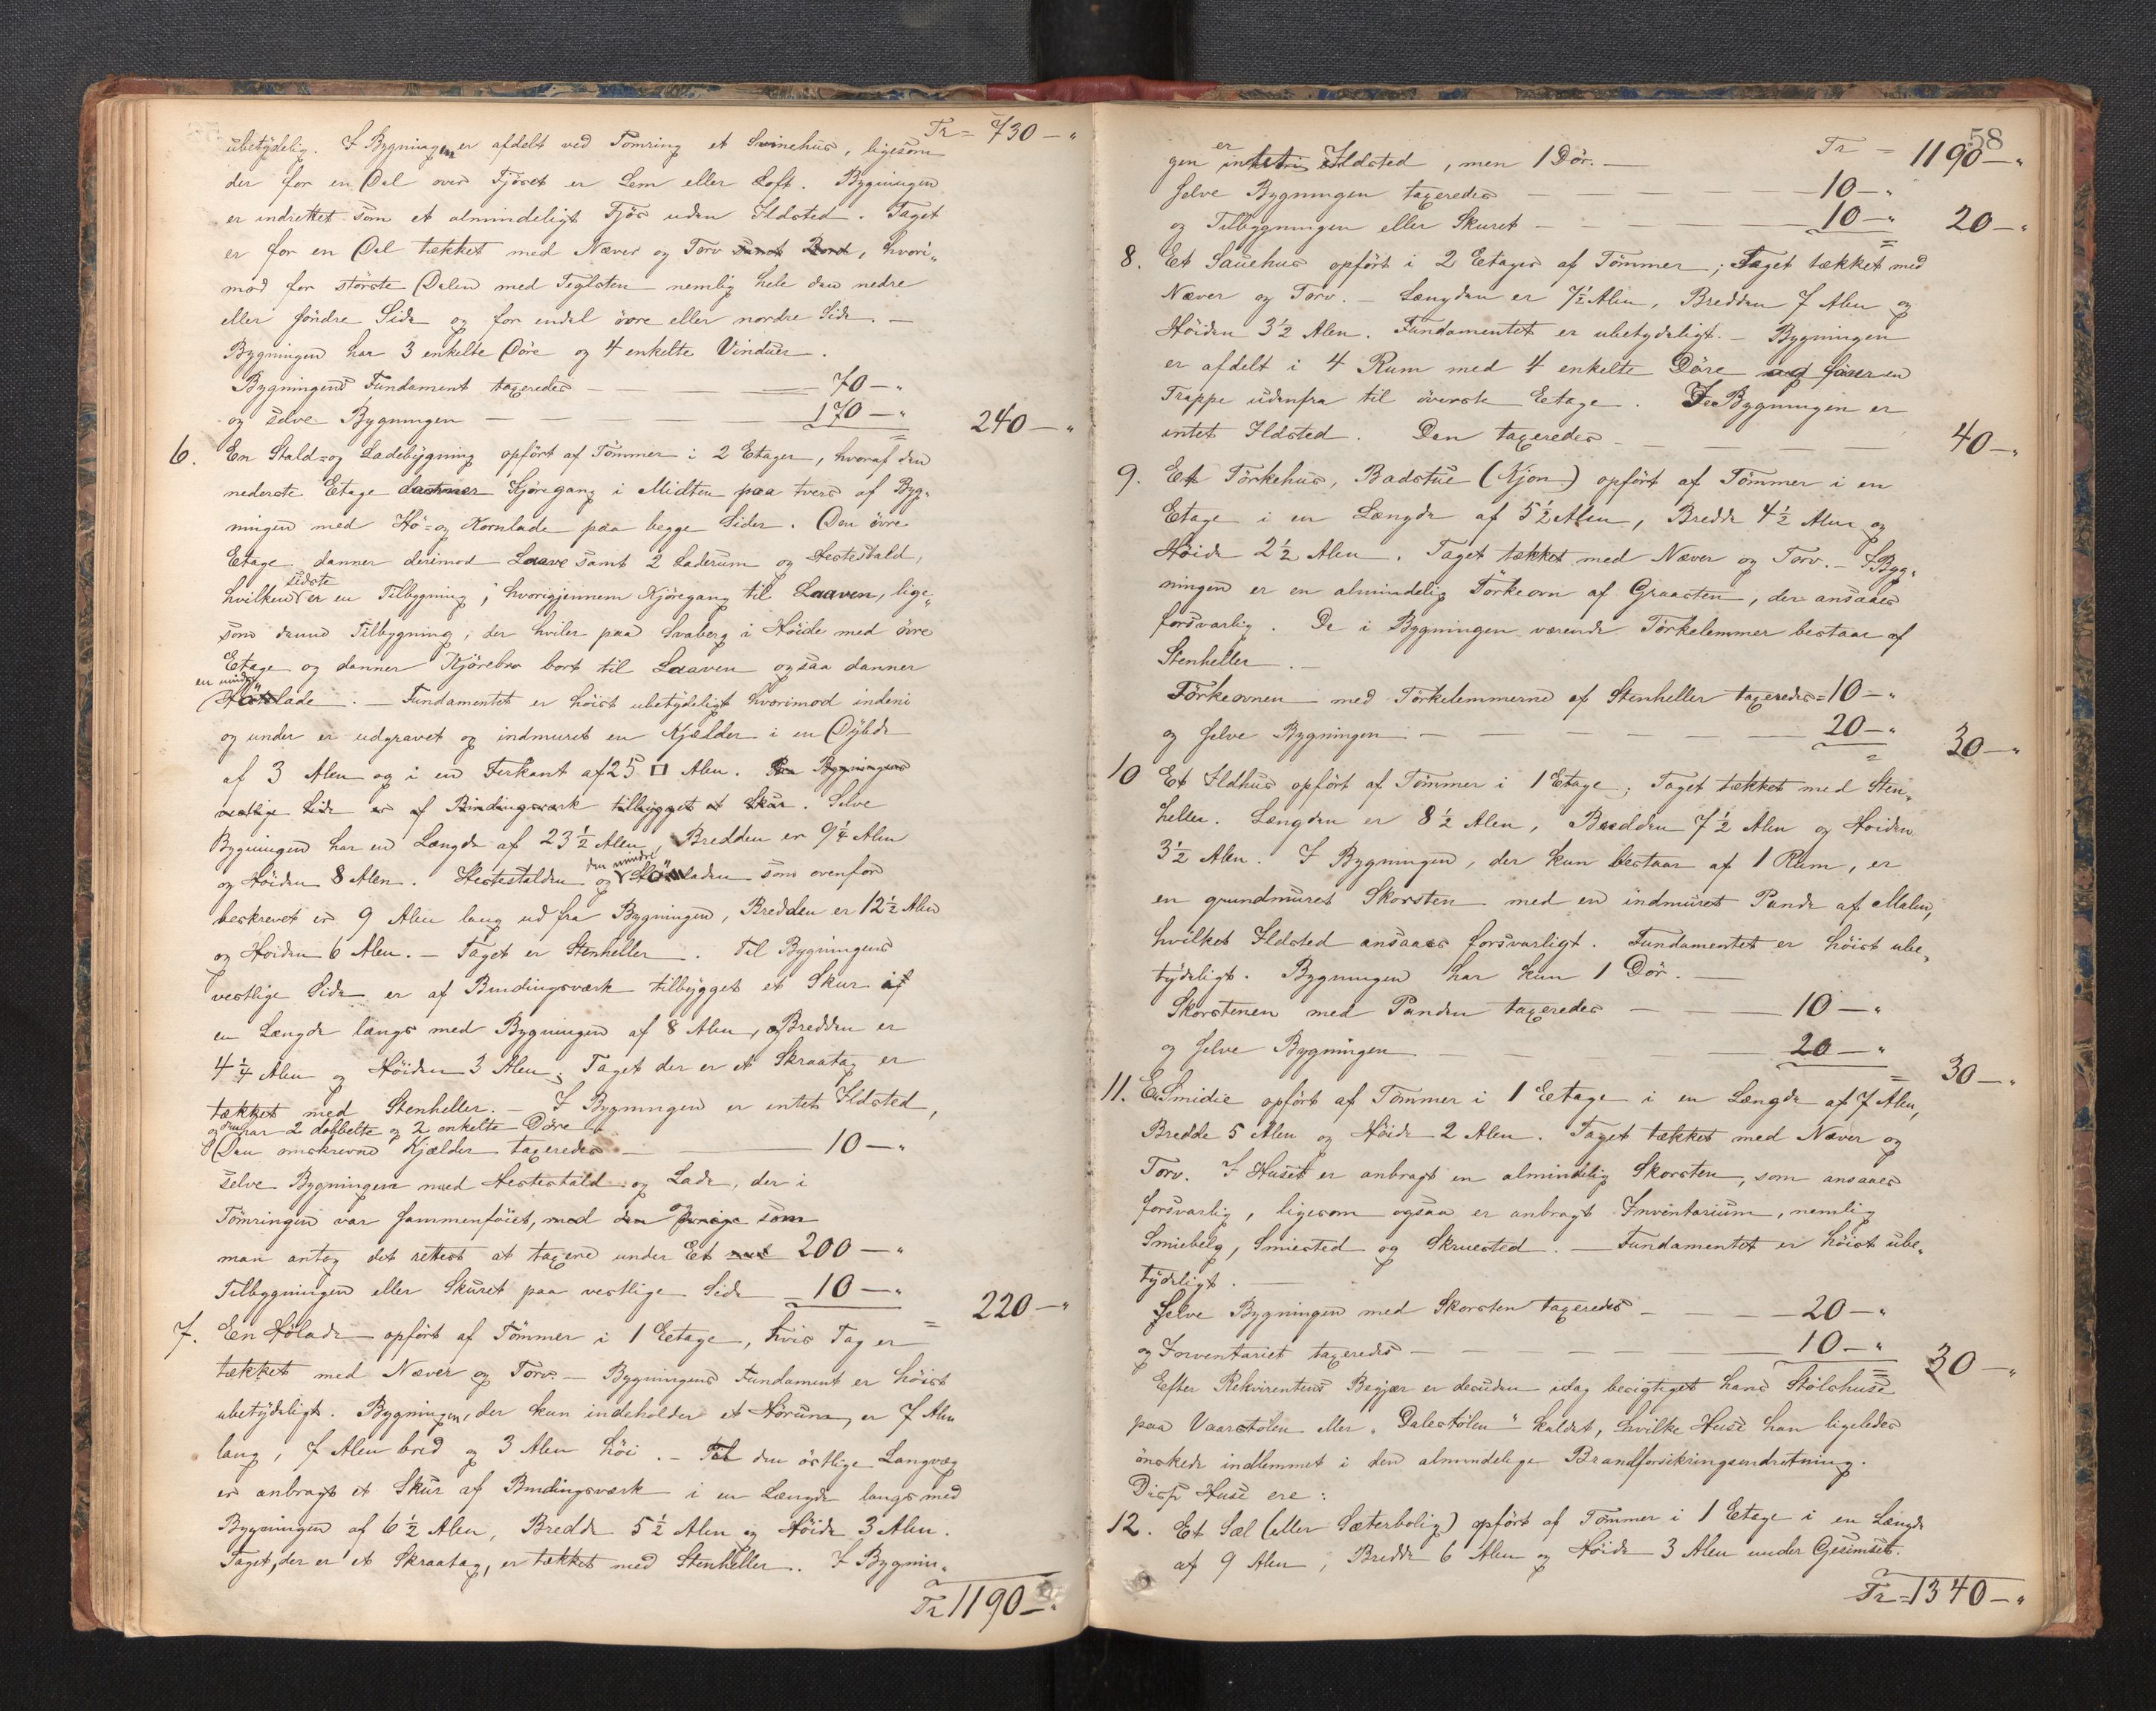 Tr = 730 — "
ubetydelig. I Bygningen er afdelt ved Tømring et Svinehus, ligesom
der for en Del over Fjøset er Lem eller Loft. Bygningen
er indrettet som et almindeligt Fjøs uden Ildsted. Taget
er for en Del tækket med Næver og Torv samt Bord, hvori„
mod for største Delen med Teglsten nemlig hele den nedre
eller søndre Side og for endel øvre eller nordre Side. —
Bygningen har 3 enkelte Døre og 4 enkelte Vinduer.
Bygningens Fundament taxeredes — 70 — "
og selve Bygningen — — 170 — " 240 — "
6. En Stald- og Ladebygning opført af Tømmer i 2 Etager, hvoraf den
nederste Etage danner Kjøregang i Midten paa tvers af Byg„
ningen med Hø- og Kornlade paa begge Sider. Den øvre
Etage danner derimod Laave samt 2 Laderum og Hestestald,
hvilken sidste er en Tilbygning, hvorigjennem Kjøregang til Laaven, lige„
som denne Tilbygning, der hviler paa Svaberg i Høide med øvre
Etage og danner Kjørebro bort til Laaven ogsaa danner
en mindre Hølade. — Fundamentet er høist ubetydeligt hvorimod indeni
og under er udgravet og indmuret en Kjælder i en Dybde
af 3 Alen og i en Firkant af 25 □ Alen. Paa Bygningens
vestlige Side er af Bindingsværk tilbygget et Skur. Selve
Bygningen har en Længde af 23 ½ Alen, Bredden er 9 ¼ Alen
og Høiden 8 Alen. Hestestalden og den mindre Høladen som ovenfor
beskrevet er 9 Alen lang ud fra Bygningen, Bredden er 12 ½ Alen
og Høiden 6 Alen. — Taget er Stenheller. Til Bygningens
vestlige Side er af Bindingsværk tilbygget et Skur af
en Længde langs med Bygningen af 8 Alen, Bredden er
4 ¼ Alen og Høiden 3 Alen; Taget der er et Skraatag er
tækket med Stenheller. — I Bygningen er intet Ildsted,
og den har 2 dobbelte og 2 enkelte Døre
Den omskrevne Kjælder taxeredes — — 10 — "
selve Bygningen med Hestestald og Lade, der i
Tømringen var sammenføiet, med den øvrige som
man antog det rettest at taxere under Et 200 — "
Tilbygningen eller Skuret paa vestlige Side = 10 — " 220 — "
7. En Hølade opført af Tømmer i 1 Etage, hvis Tag er
tækket med Næver og Torv. — Bygningens Fundament er høist
ubetydeligt. Bygningen, der kun indeholder et Hørum, er 7 Alen
lang, 7 Alen bred og 3 Alen høi. — Til den østlige Langvæg
er anbragt et Skur af Bindingsværk i en Længde langs med
Bygningen af 6 ½ Alen, Bredde 5 ½ Alen og Høide 3 Alen.
Taget, der er et Skraatag, er tækket med Stenheller. I Bygnin„
Tr 1190 — "
58
Tr = 1190 — "
gen er intet Ildsted, men 1 Dør. —
selve Bygningen taxeredes — — 10 — "
og Tilbygningen eller Skuret — — — 10 — " 20 — "
8. Et Sauehus opført i 2 Etager af Tømmer; Taget tækket med
Næver og Torv. — Længden er 7 ½ Alen, Bredden 7 Alen og
Høiden 3 ½ Alen. Fundamentet er ubetydeligt. — Bygningen
er afdelt i 4 Rum med 4 enkelte Døre og har en
Trappe udenfra til øverste Etage. I Bygningen er
intet Ildsted. Den taxeredes — — — 40 — "
9. Et Tørkehus, Badstue (Kjon) opført af Tømmer i en
Etage i en Længde af 5 ½ Alen, Bredde 4 ½ Alen og
Høide 2 ½ Alen. Taget tækket med Næver og Torv. — I Byg„
ningen er en almindelig Tørkeovn af Graasten, der ansaaes
forsvarlig. De i Bygningen værende Tørkelemmer bestaar af
Stenheller. —
Tørkeovnen med Tørkelemmerne af Stenheller taxeredes = 10 — "
og selve Bygningen — — — 20 — " 30 — "
10 Et Ildhus opført af Tømmer i 1 Etage; Taget tækket med Sten„
heller. Længden er 8 ½ Alen, Bredden 7 ½ Alen og Høiden
3 ½ Alen. I Bygningen, der kun bestaar af 1 Rum, er
en grundmuret Skorsten med en indmuret Pande af Malm,
hvilket Ildsted ansaaes forsvarligt. Fundamentet er høist ube„
tydeligt. Bygningen har kun 1 Dør. —
Skorstenen med Panden taxeredes — — 10 — "
og selve Bygningen — — 20 — " 30 — "
11. En Smidie opført af Tømmer i 1 Etage i en Længde af 7 Alen,
Bredde 5 Alen og Høide 2 Alen. Taget tækket med Næver og
Torv. I Huset er anbragt en almindelig Skorsten, som ansaaes
forsvarlig, ligesom ogsaa er anbragt Inventarium, nemlig
Smiebelg, Smiested og Skruested. — Fundamentet er høist ube„
tydeligt. —
Selve Bygningen med Skorsten taxeredes — — 20 — "
og Inventariet taxeredes — — — 10 — " 30 — "
Efter Rekvirentens Begjær er desuden idag besigtiget hans Stølshuse
paa Vaarstølen eller „Dalestølen" kaldet, hvilke Huse han ligeledes
ønskede indlemmet i den almindelige Brandforsikringsindretning.
Disse Huse ere:
12. Et Sæl (eller Sæterbolig) opført af Tømmer i 1 Etage i en Længde
af 9 Alen, Bredde 6 Alen og Høide 3 Alen under Gesimset.
Tr = 1340 — "